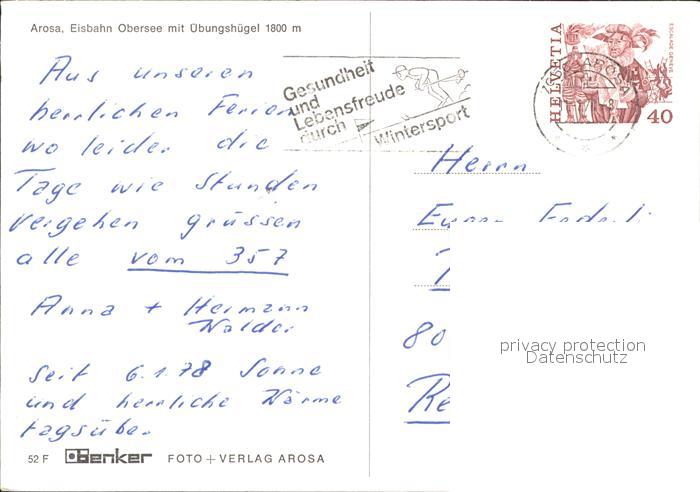 Arosa, Eisbahn Obersee mit Übungshügel 1800 m
Aus unseren
herrlichen Ferien
wo leider die
Tage wie Stunden
vergehen grüssen
alle vom 357
Anna + Hermann
Walder
Seit 6.1.78 Sonne
und herrliche Wärme
tagsüber.
52 F Benker FOTO + VERLAG AROSA
Gesundheit
und
Lebensfreude
durch
Wintersport
HELVETIA
ESCALADE GENÈVE
AROSA
40
Herrn
80
privacy protection
Datenschutz